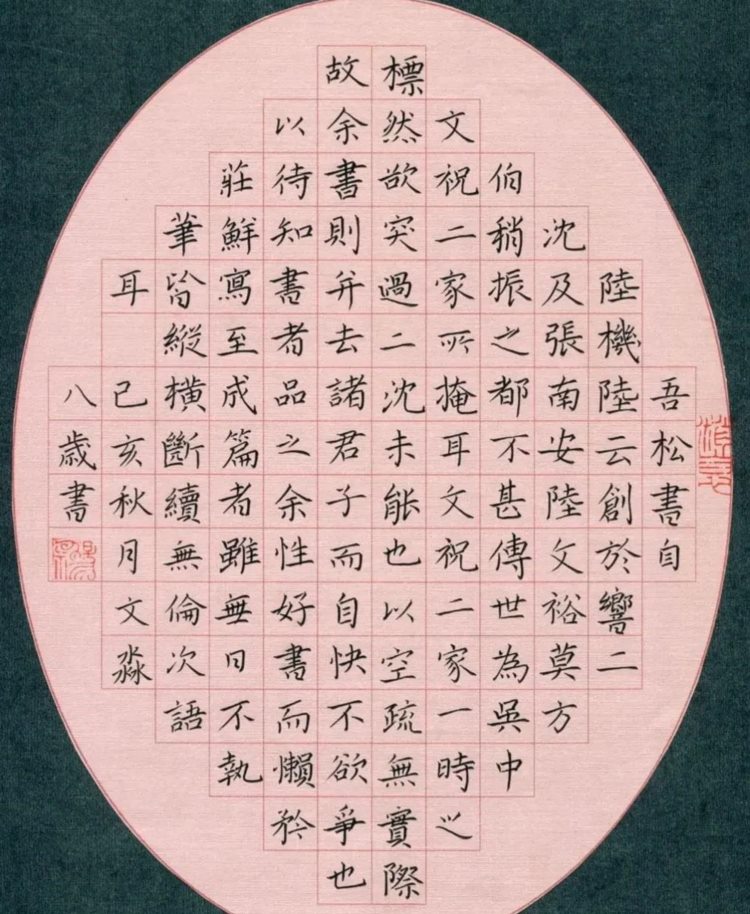 吾松書自
陸機陸云創於響二
沈及張南安陸文裕莫方
伯稍振之都不甚傳世為吳中
文祝二家所掩耳文祝二家一時之
標然欲突過二沈未能也以空疏無實際
故余書則并去諸君子而自快不欲爭也
以待知書者品之余性好書而懶矜
莊鮮寫至成篇者雖無日不執
筆皆縱橫斷續無倫次語
耳
己亥秋月文淼
八歲書